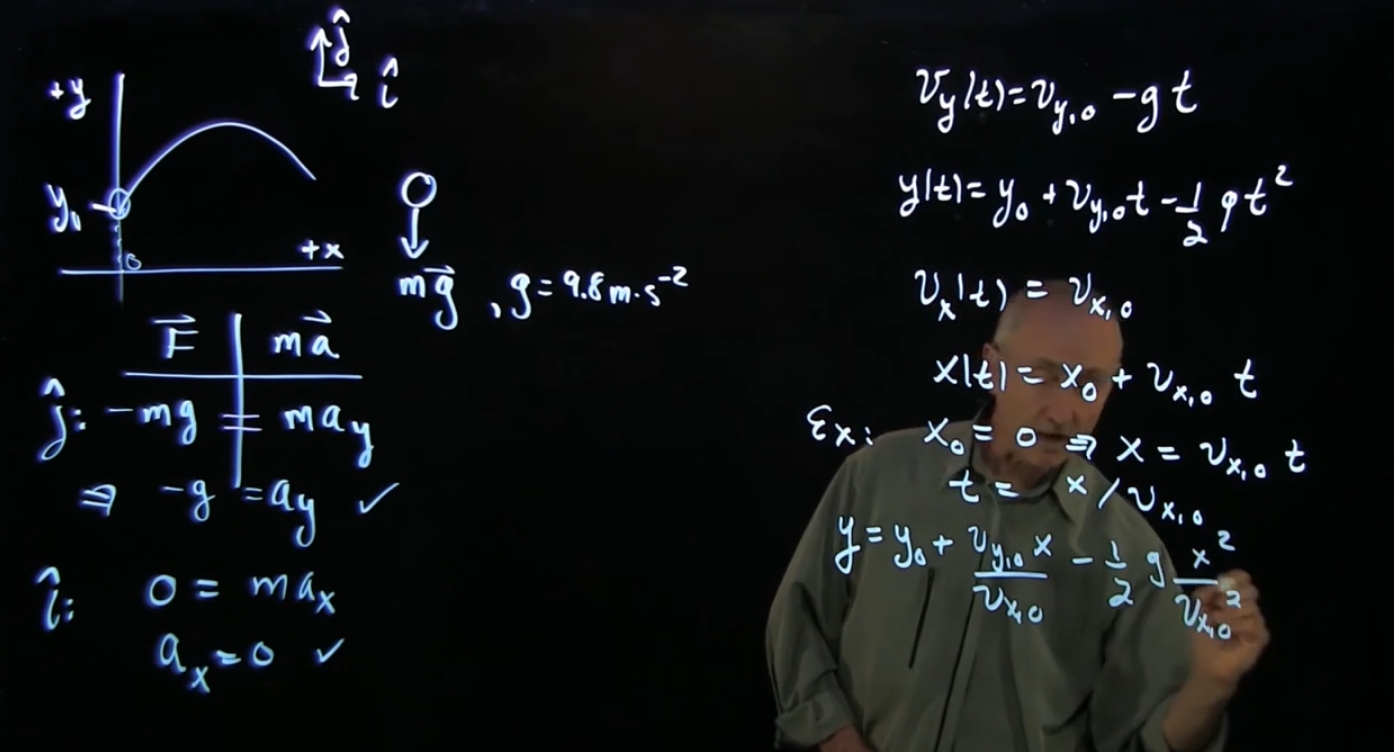 ĵ
î
+y
y₀
0
+x
mg⃗, g = 9.8 m·s⁻²
F⃗ | ma⃗
ĵ: -mg = ma_y
⇒ -g = a_y ✓
î: 0 = ma_x
a_x = 0 ✓
v_y(t) = v_y,0 - gt
y(t) = y₀ + v_y,0 t - 1/2 g t²
v_x(t) = v_x,0
x(t) = x₀ + v_x,0 t
Ex: x₀ = 0 ⇒ x = v_x,0 t
t = x / v_x,0
y = y₀ + v_y,0 x / v_x,0 - 1/2 g x² / v_x,0²